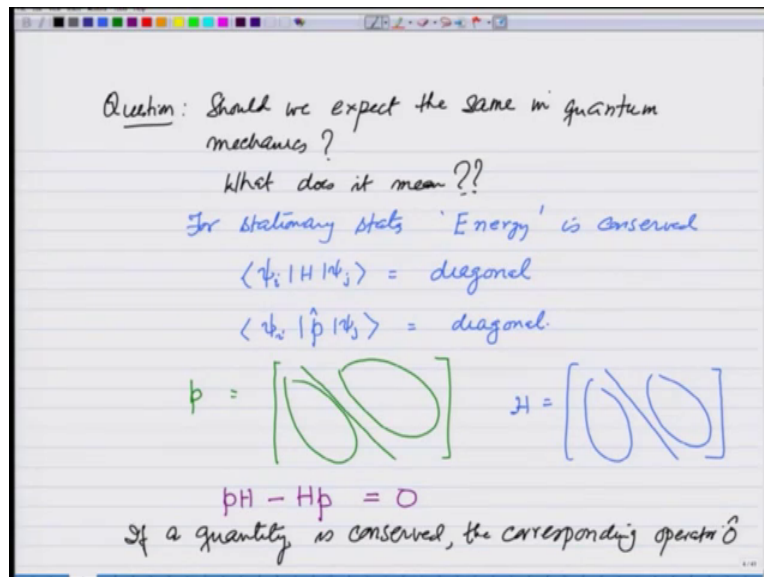 Question: Should we expect the same in quantum
mechanics?
What does it mean??
For stationary stats 'Energy' is conserved
⟨ψi|H|ψj⟩ = diagonal
⟨ψi|p̂|ψj⟩ = diagonal.
p = [ ] H = [ ]
pH - Hp = 0
If a quantity is conserved, the corresponding operator Ô